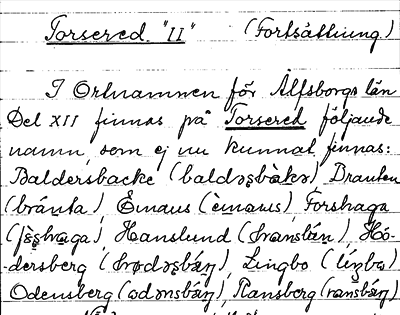 Torsered. "II" (Fortsättning)
I Ortnamnen för Älfsborgs län
Del XII finnas på Torsered följande
namn, som ej nu kunnat finnas:
Baldersbacke (baldəʂbàkə) Branten
(bránta), Emaus (èmaus) Forshaga
Hanslund Hö-
dersberg Lingbo
Odensberg (odənsbárj), Ransberg